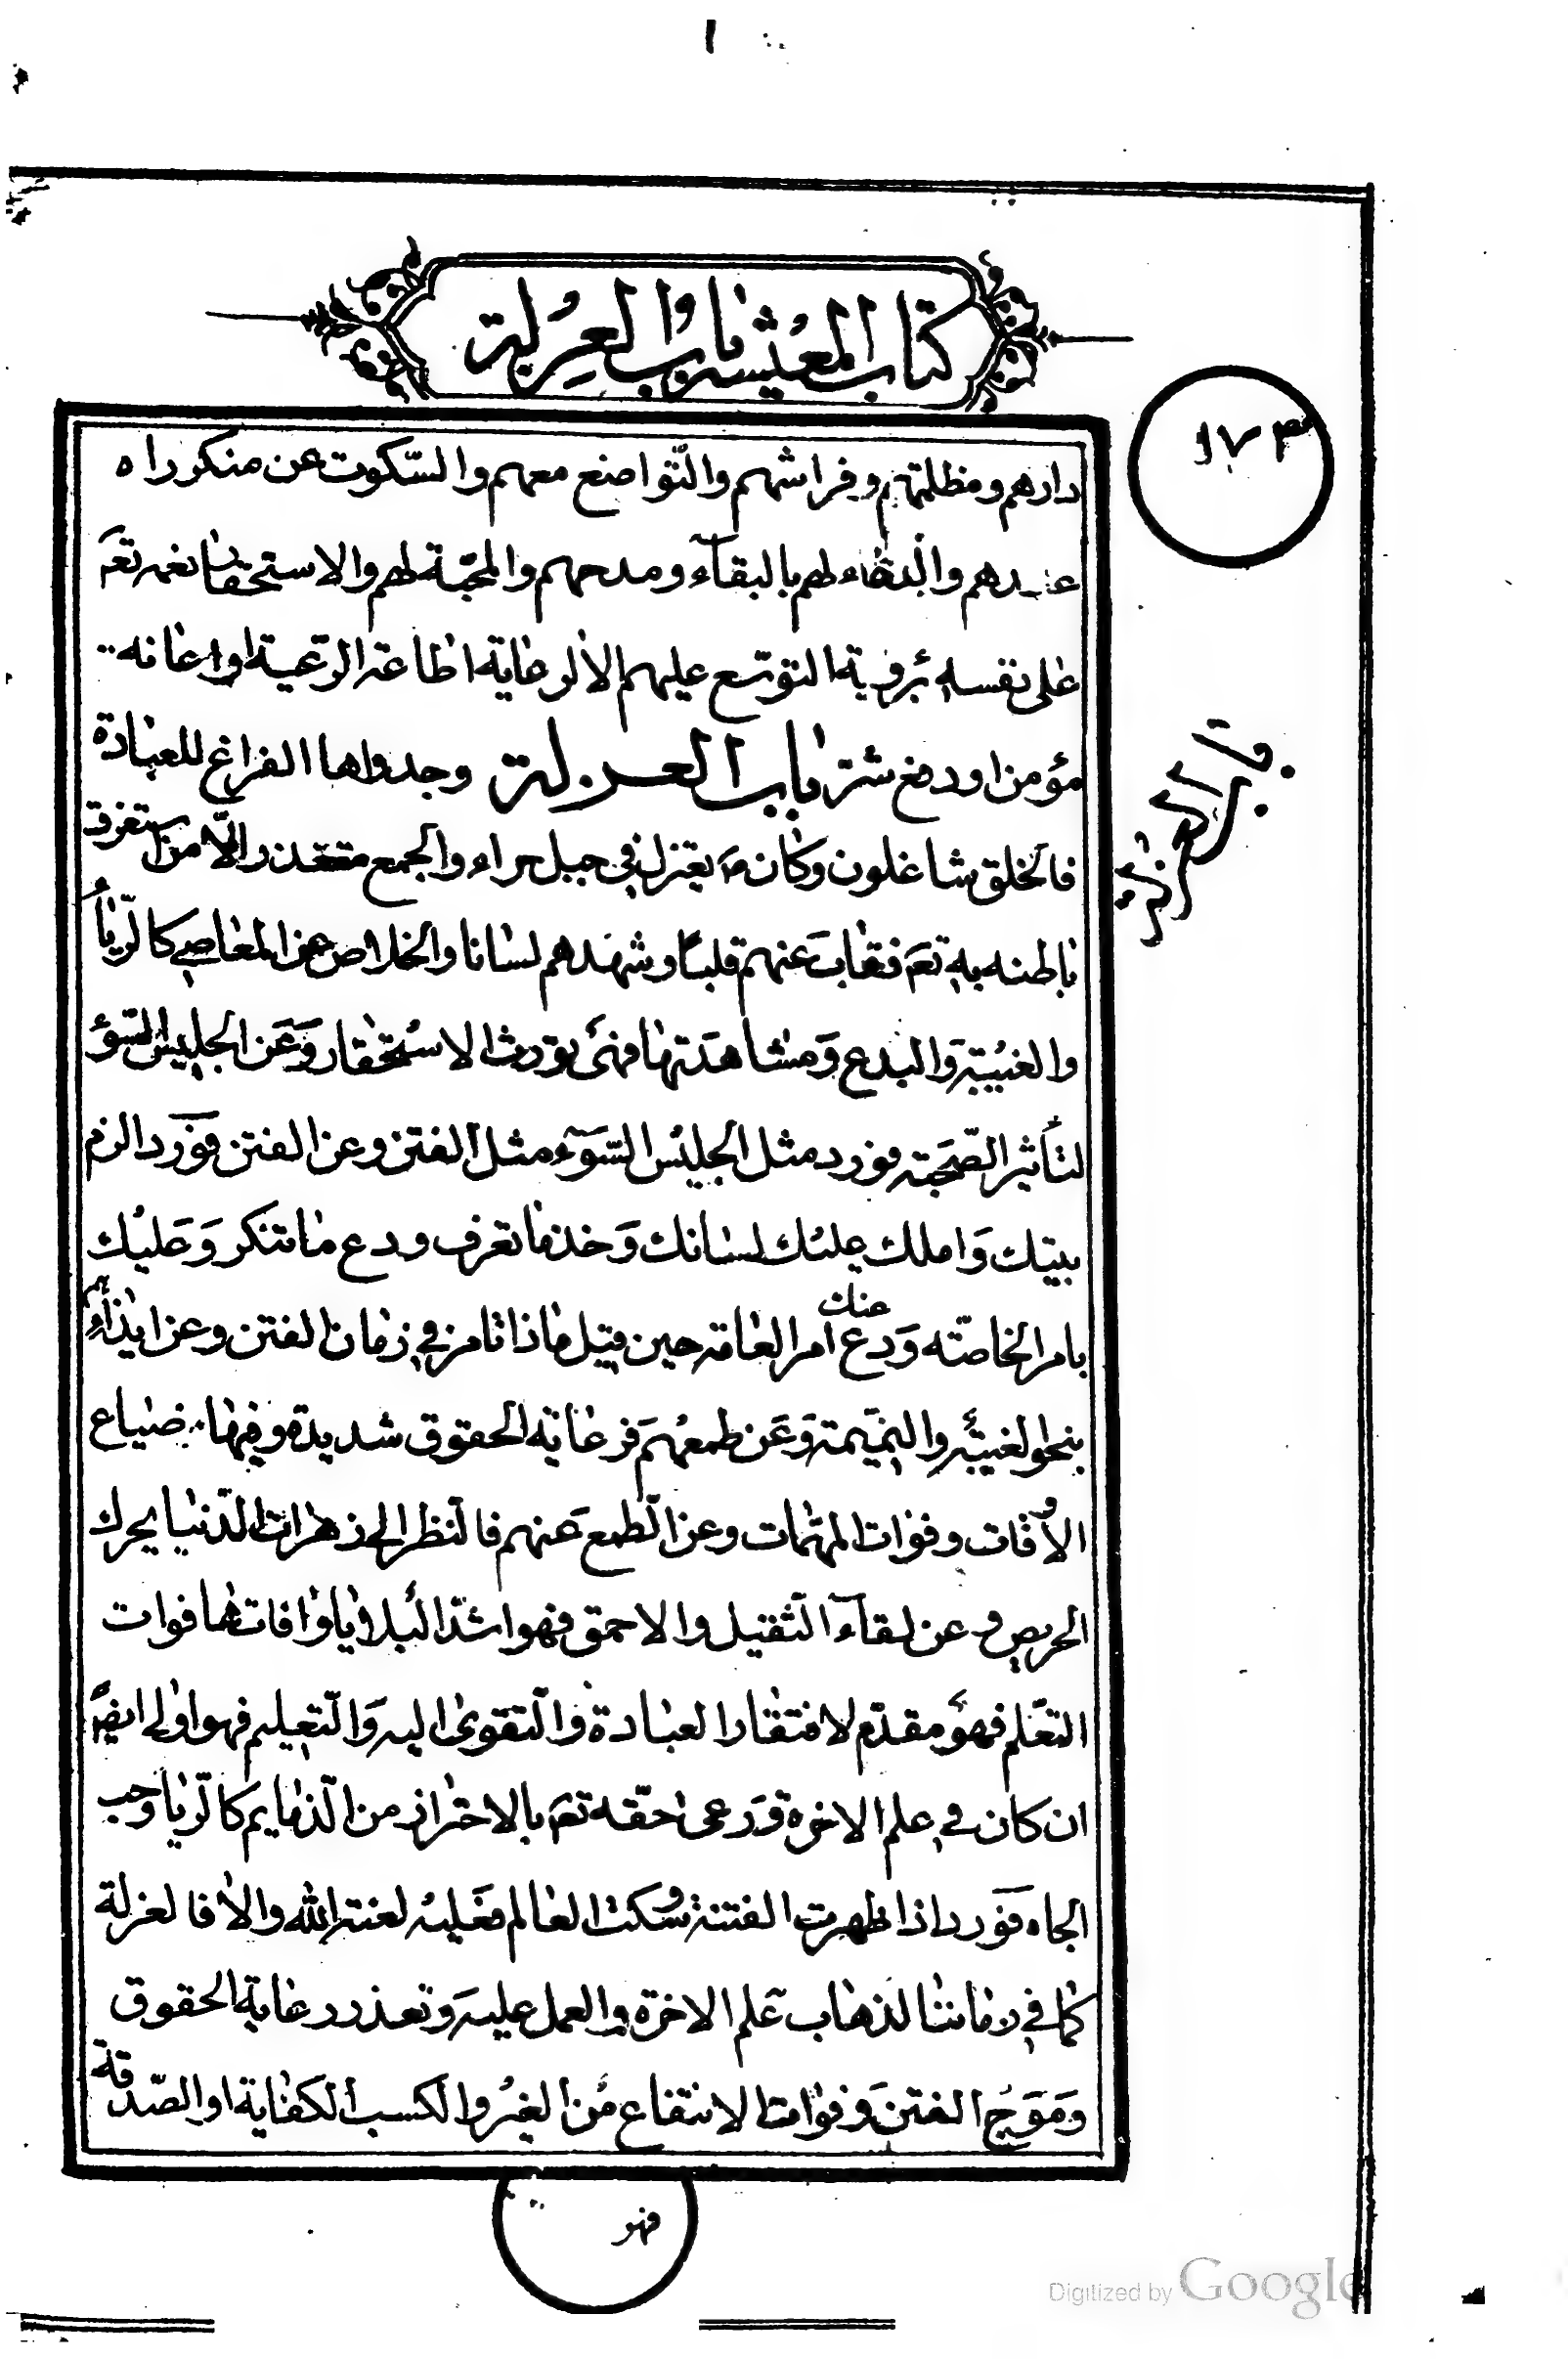 كتاب المعيشة وباب العزلة
١٧٣
دارهم ومظلتهم وفراشهم والتّواضع معهم والسّكوت عن منكر راه
عندهم والدّعاء لهم بالبقآء ومدحهم والمحبّة لهم والاستحقار نعمه تعَ
على نفسه برؤية التوسّع عليهم الا لرعاية اطاعة الرّعية او اعانه
مؤمن او دفع شر باب العزلة وجدواها الفراغ للعبادة
فالخلق شاغلون وكان صَ يعتزل في جبل حراء والجمع متعذر الّا من استغرق
باطنه به تعَ فغاب عنهم قلبًا وشهدهم لسانا والخلاص عن المعاصي كالرّياء
والغيبة وَالبدع وَمشاهدتها فهي تورث الاستحقار وَعَن الجليس السّوء
لتأثير الصّحبة فورد مثل الجليس السّوَء مثل الفتن وعن الفتن فوَرد الزم
بيتك وَاملك عليك لسانك وَخذ ما تعرف ودع ما تنكر وَعَليك
بامر الخاصّه وَدع عنك امر العامة حين قيل ماذا تامر في زمان الفتن وعن ايذائهم
بنحو الغيبة والنّميمة وَعَن طمعهم فرعاية الحقوق شديدة وفيها ضياع
الأوقات وفوات المهمّات وعن الطّمع عَنهم فالنّظر الى زهرات الدّنيا يحرك
الحريص وعن لقآء الثّقيل والاحمق فهو اشدّ البلايا وافاتها فوات
التعلّم فهوَ مقدّم لافتقار العبادة والتّقوى اليه وَالتّعليم فهو اولى ايضًا
ان كان في علم الاخرة ورعى حقّه تعَ بالاحتراز من الذّمايم كالرّيا وحب
الجاه فوَرد اذا ظهرت الفتنة وسكت العالم فعَليه لعنة الله والا فالعزلة
كما في زماننا لذهاب عَلم الاخرة والعمل عليه وَتعذر رعاية الحقوق
وَمَوج الفتن وَفوات الانتفاع من الغير والكسب الكفاية او الصّدقة
فهو
Digitized by Google